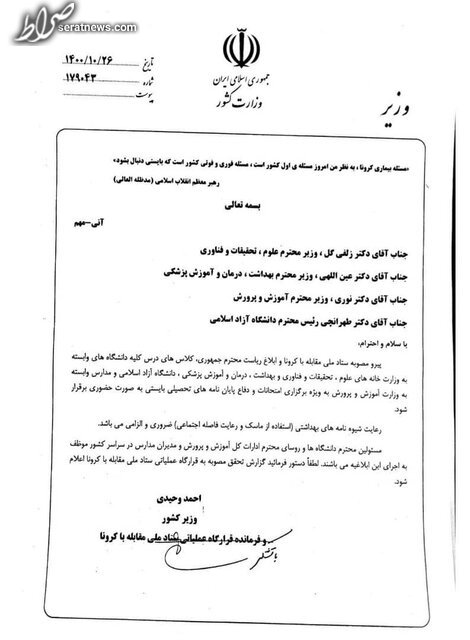 صراط
seratnews.com
تاریخ ۱۴۰۰/۱۰/۲۶
شماره ۱۷۹۰۴۳
پیوست
جمهوری اسلامی ایران
وزارت کشور
وزیر
«مسئله بیماری کرونا، به نظر من امروز مسئله ی اول کشور است، مسئله فوری و فوتی کشور است که بایستی دنبال بشود»
رهبر معظم انقلاب اسلامی (مدظله العالی)
بسمه تعالی
آنی-مهم
جناب آقای دکتر زلفی گل، وزیر محترم علوم، تحقیقات و فناوری
جناب آقای دکتر عین اللهی، وزیر محترم بهداشت، درمان و آموزش پزشکی
جناب آقای دکتر نوری، وزیر محترم آموزش و پرورش
جناب آقای دکتر طهرانچی رئیس محترم دانشگاه آزاد اسلامی
با سلام و احترام،
پیرو مصوبه ستاد ملی مقابله با کرونا و ابلاغ ریاست محترم جمهوری، کلاس های درس کلیه دانشگاه های وابسته
به وزارت خانه های علوم، تحقیقات و فناوری و بهداشت، درمان و آموزش پزشکی، دانشگاه آزاد اسلامی و مدارس وابسته
به وزارت آموزش و پرورش به ویژه برگزاری امتحانات و دفاع پایان نامه های تحصیلی بایستی به صورت حضوری برقرار
شود.
رعایت شیوه نامه های بهداشتی (استفاده از ماسک و رعایت فاصله اجتماعی) ضروری و الزامی می باشد.
مسئولین محترم دانشگاه ها و روسای محترم ادارات کل آموزش و پرورش و مدیران مدارس در سراسر کشور موظف
به اجرای این ابلاغیه می باشند. لطفاً دستور فرمائید گزارش تحقق مصوبه به قرارگاه عملیاتی ستاد ملی مقابله با کرونا اعلام
شود.
احمد وحیدی
وزیر کشور
و فرمانده قرارگاه عملیاتی ستاد ملی مقابله با کرونا